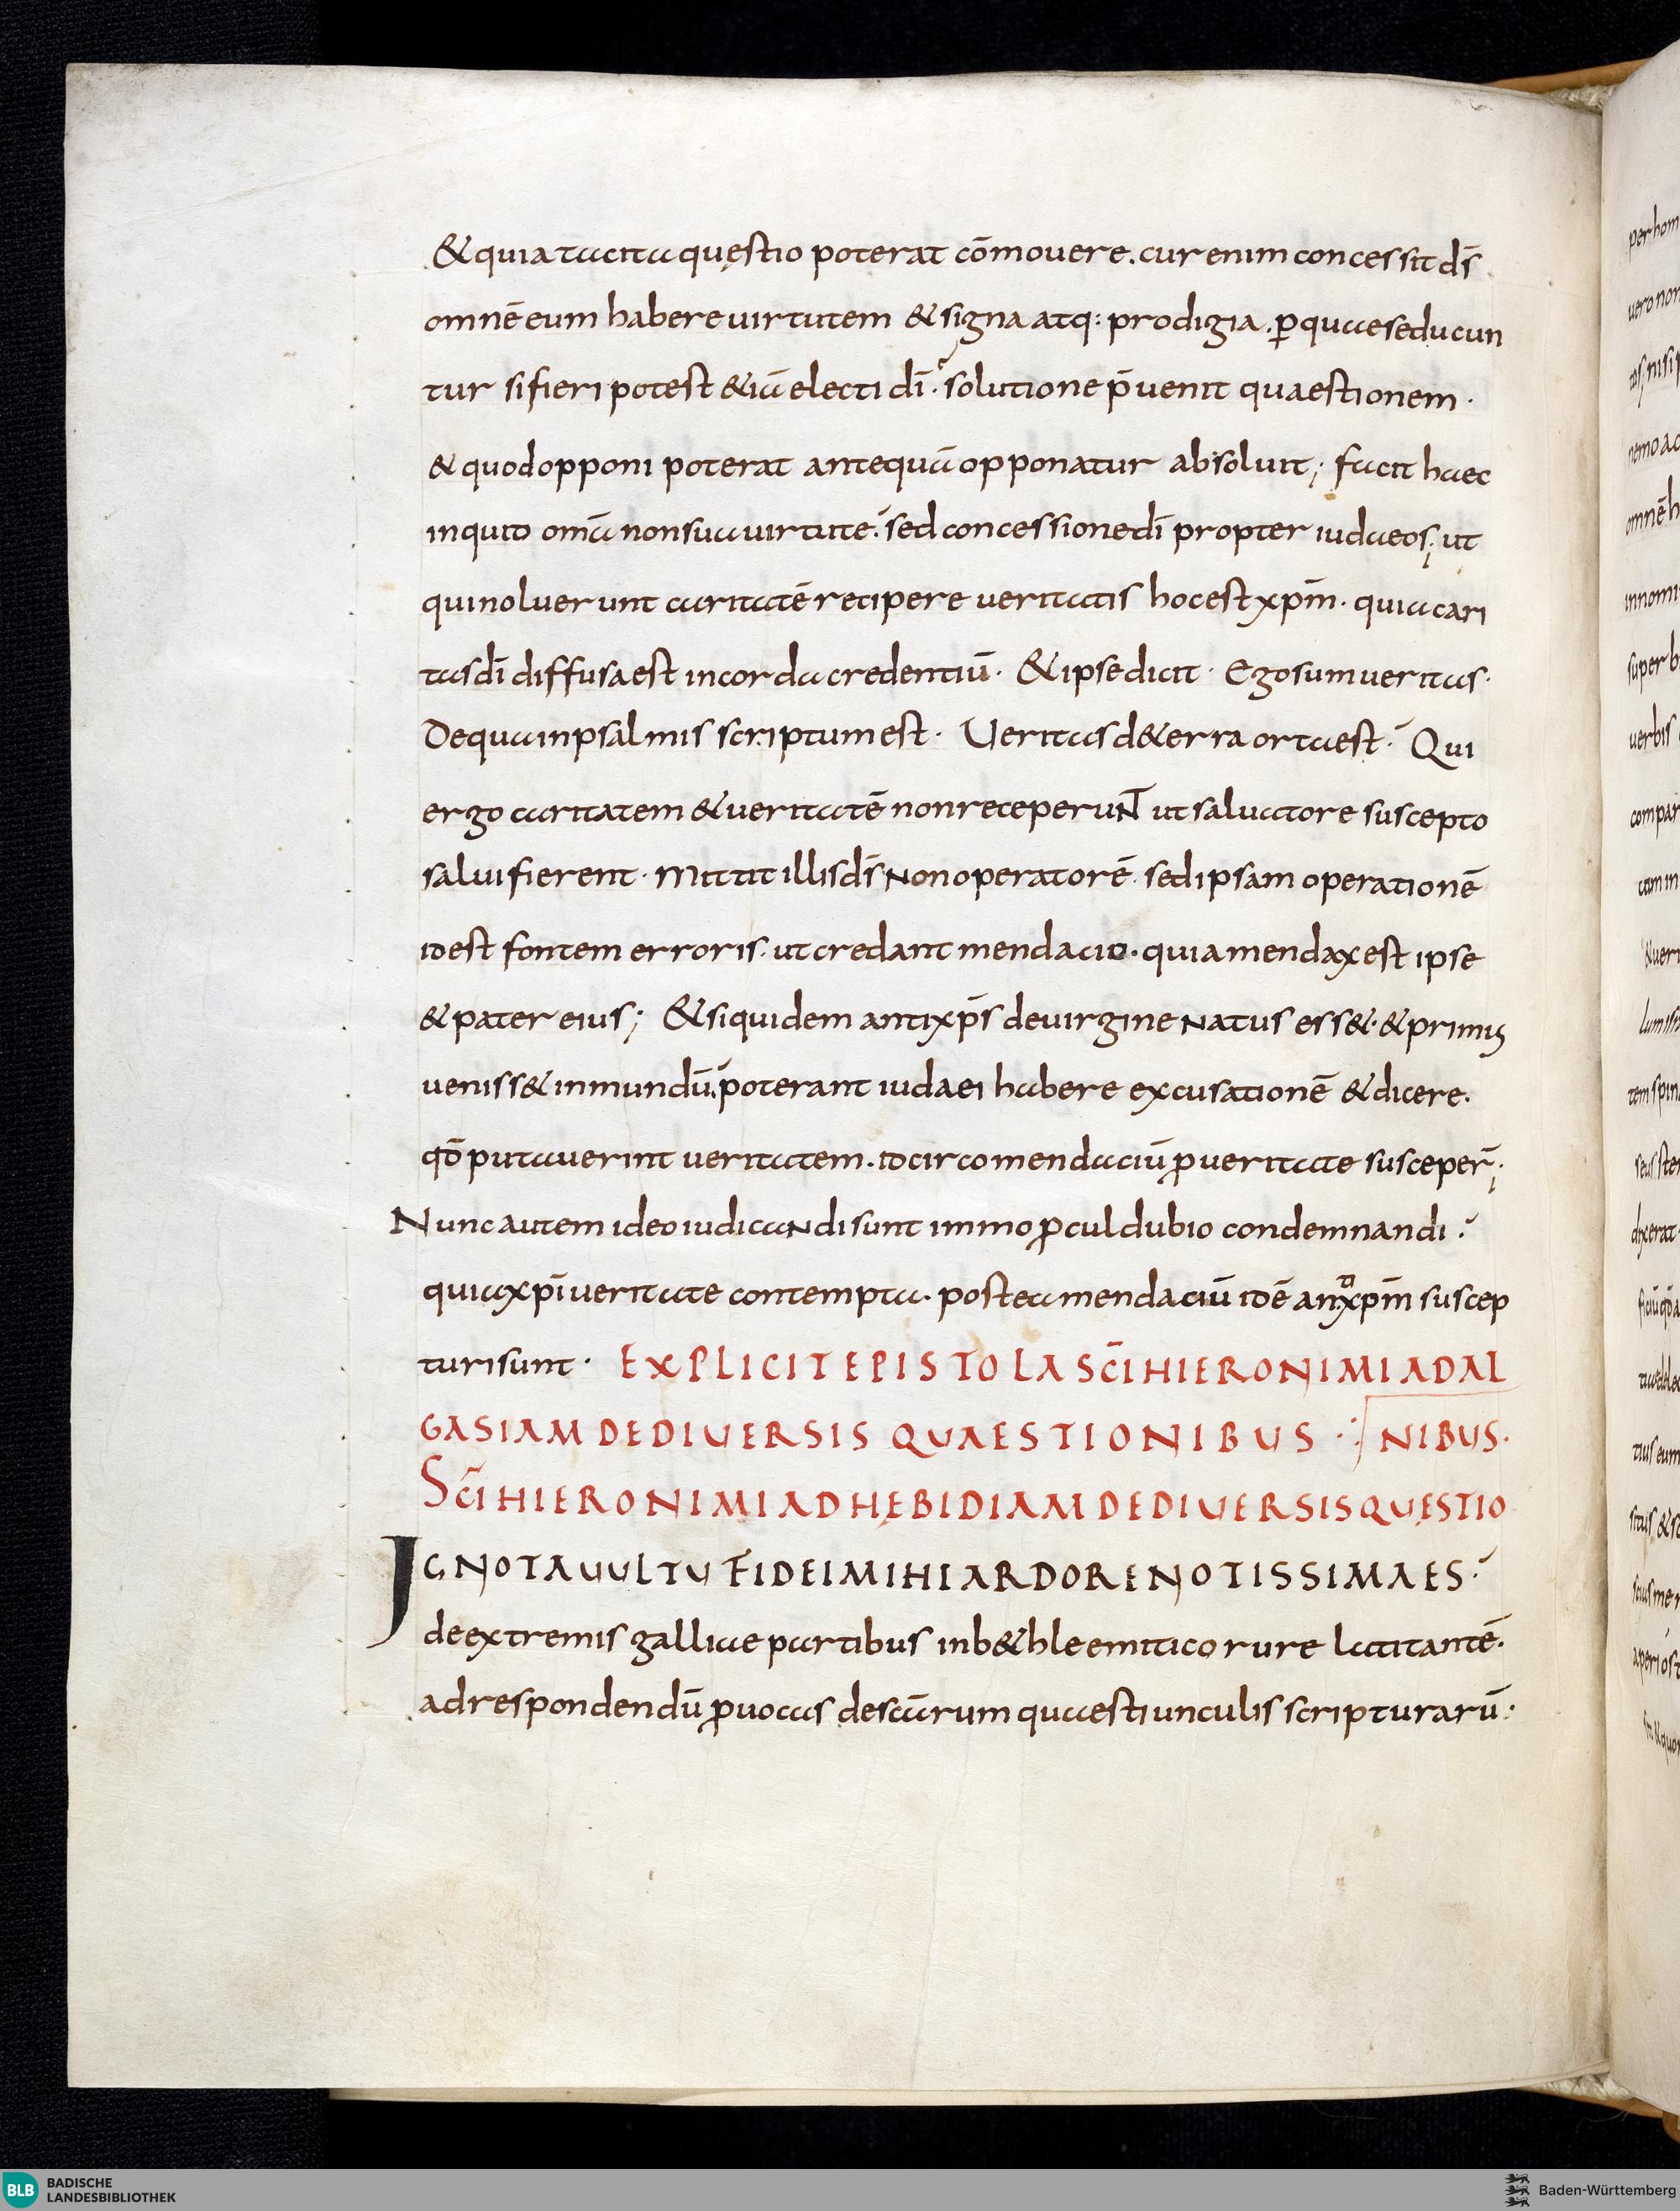 & quia tacita quęstio poterat cōmouere. cur enim concessit d̄s
omnē eum habere uirtutem & signa atq: prodigia. ꝑ quae seducun
tur si fieri potest & iā electi dī. solutione p̄uenit quaestionem.
& quod opponi poterat antequā opponatur absoluit; facit haec
inquid omā non sua uirtute. sed concessione dī propter iudaeos; ut
qui noluerunt caritatē recipere ueritatis hoc est xp̄m. quia cari
tas dī diffusa est in corda credentiū. & ipse dicit. Ego sum ueritas.
De qua in psalmis scriptum est. Ueritas d& erra orta est. Qui
ergo caritatem & ueritatē non receperuNT ut saluatore suscepto
salui fierent. Mittit illis d̄s Non operatorē sed ipsam operationē
id est fontem erroris. ut credant mendacio. quia mendax est ipse
& pater eius; & siquidem antixp̄s de uirgine Natus ess& & primus
ueniss& in mundū. poterant iudaei habere excusationē & dicere.
qd̄ putauerint ueritatem. idcirco mendaciū ꝓ ueritate susceper̄;
Nunc autem ideo iudicaNdi sunt immo ꝓcul dubio condemnandi.
quia xp̄i ueritate contempta. postea mendaciū idē antixp̄m suscep
turi sunt. EXPLICIT EPISTOLA SC̄I HIERONIMI AD AL
GASIAM DE DIUERSIS QUAESTIONIBUS. NIBUS.
SC̄I HIERONIMI AD HĘBIDIAM DE DIUERSIS QUĘSTIO
IGNOTA UULTU FIDEI MIHI ARDORE NOTISSIMA ES.
de extremis galliae partibus in b&hleemitico rure latitantē.
ad respondendū ꝓuocas de scārum quaestiunculis scripturarū.
BLB BADISCHE
LANDESBIBLIOTHEK
Baden-Württemberg